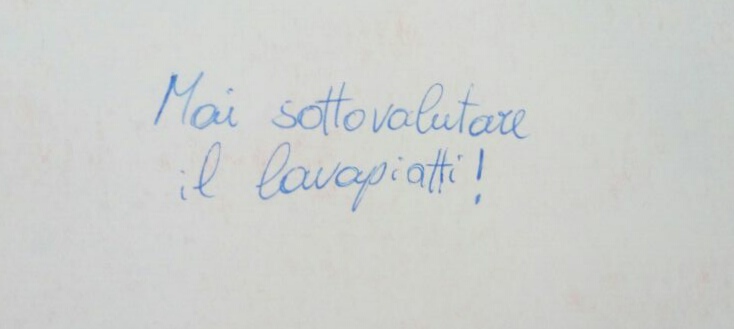 Mai sottovalutare
il lavapiatti!